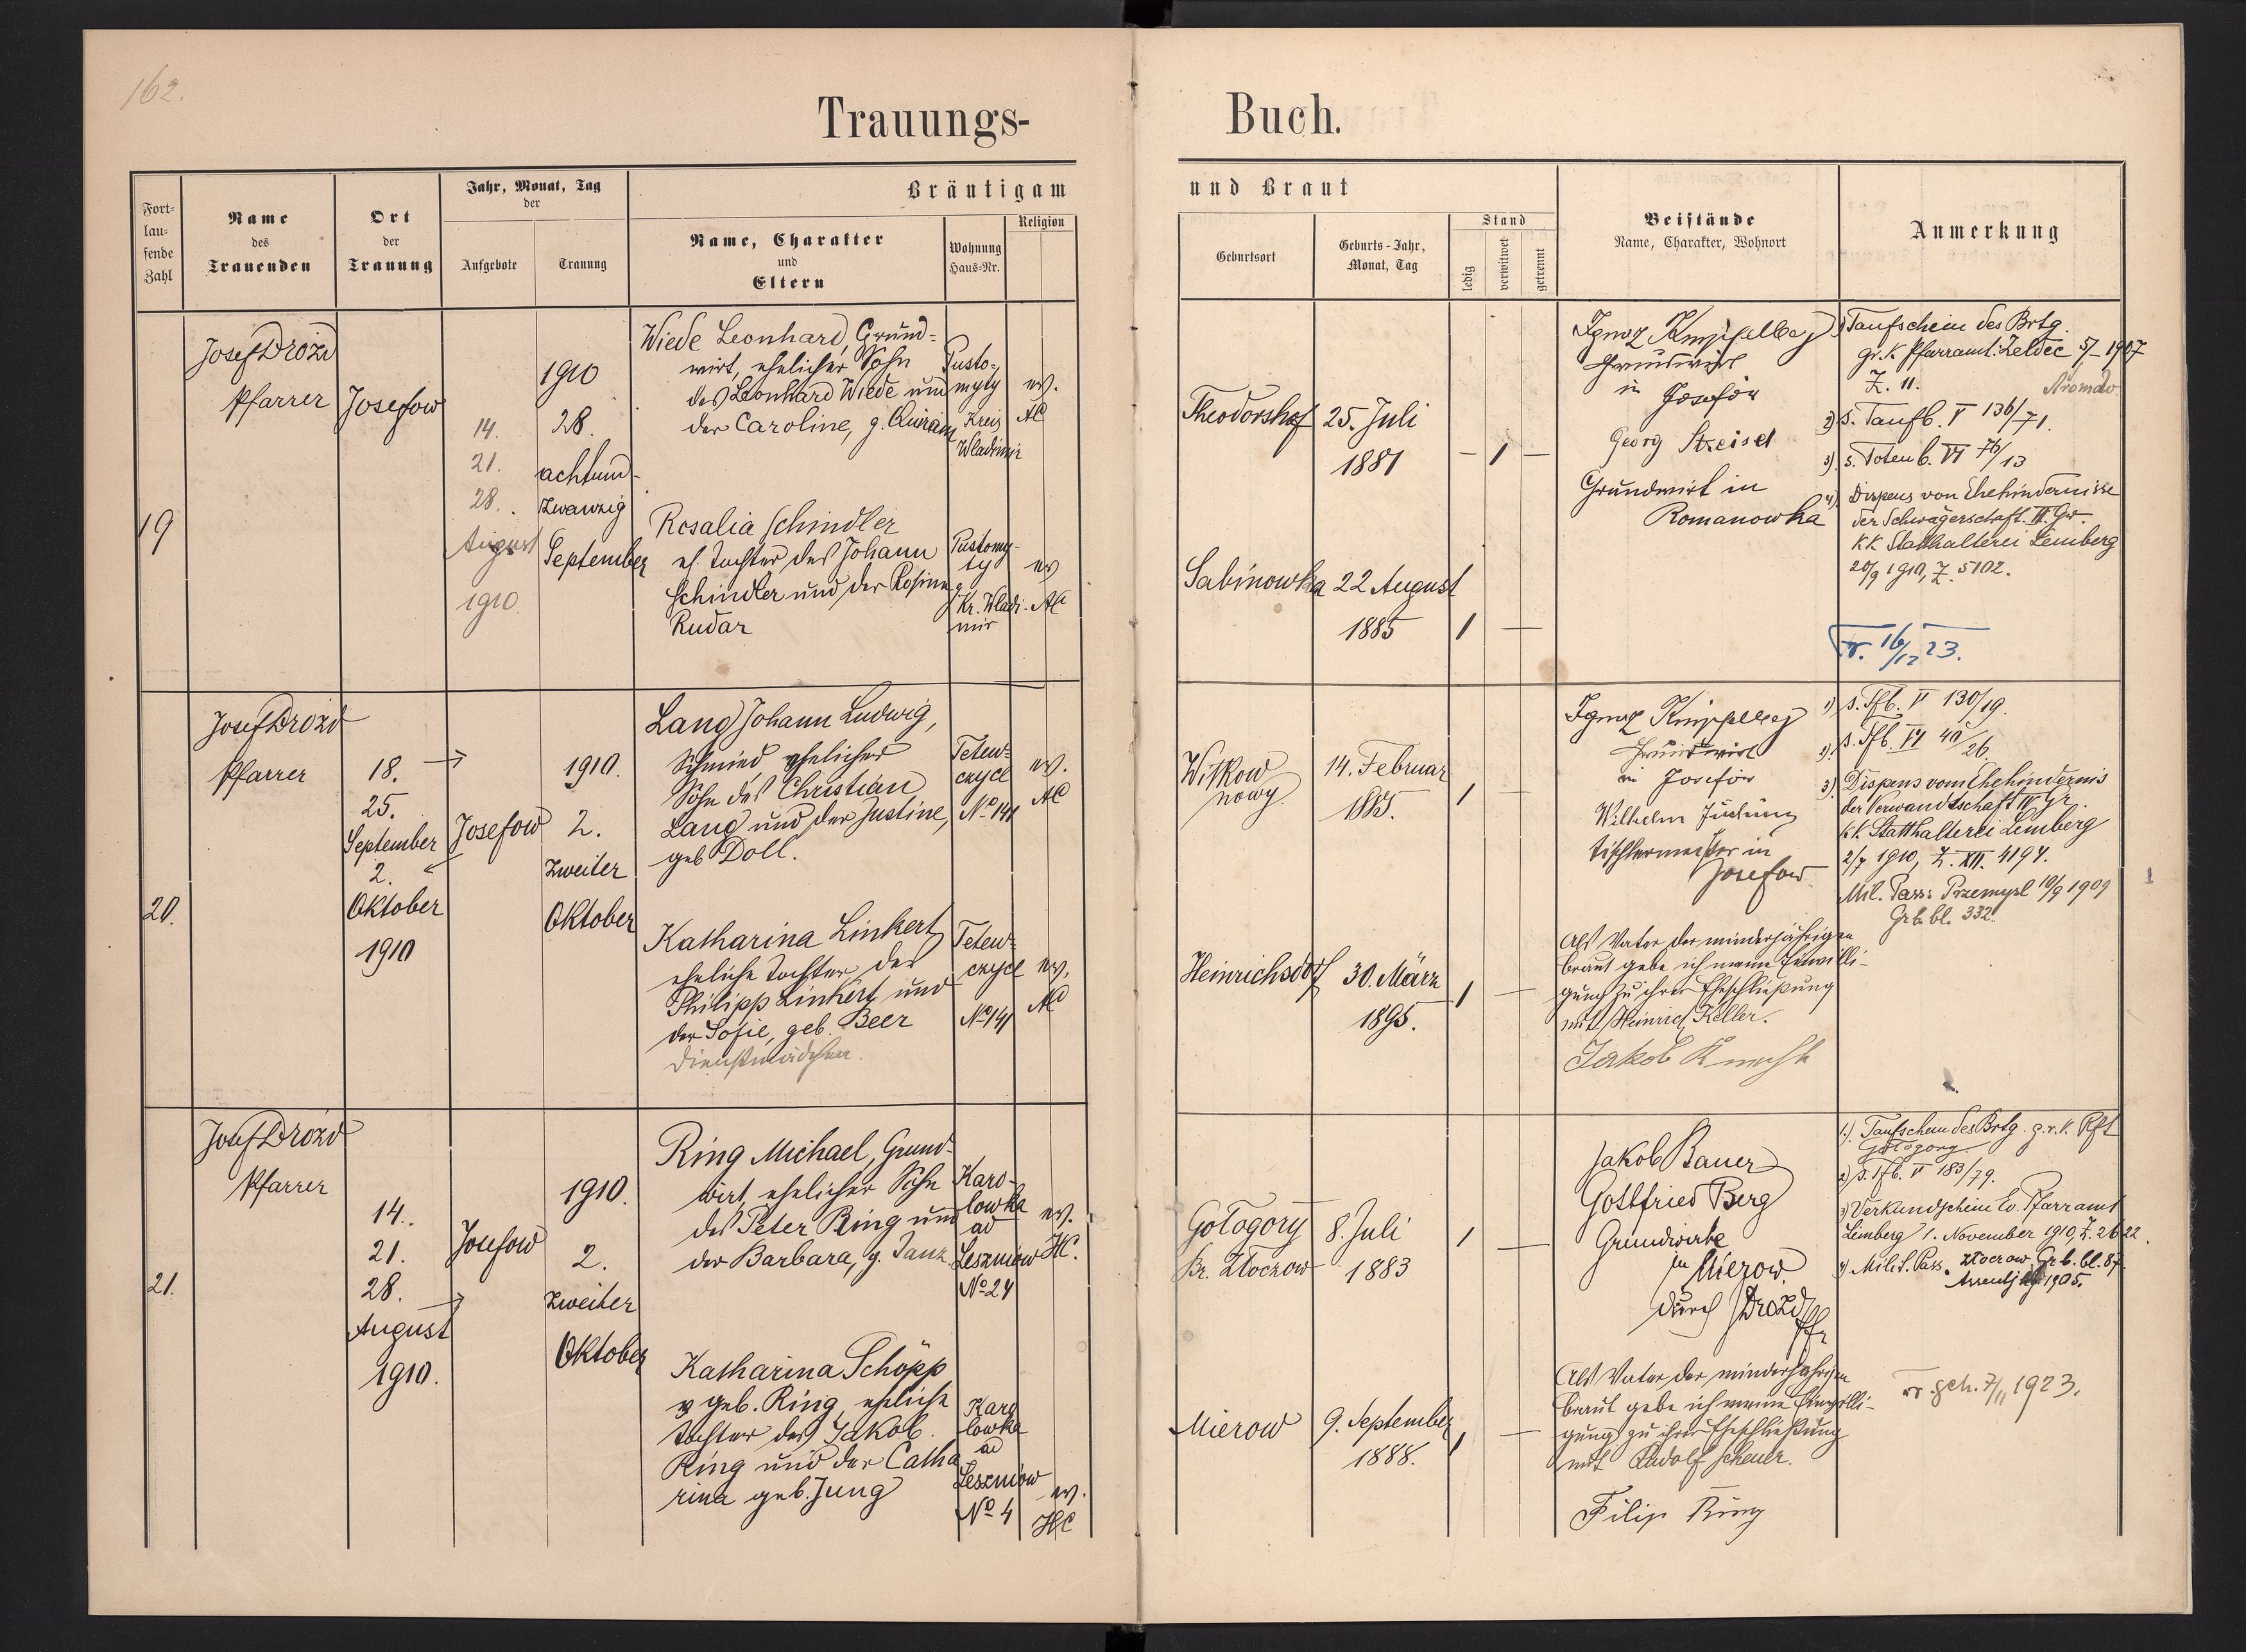 162.
Trauungs-
Buch.
Fort-
lau-
fende
Zahl
Name
des
Trauenden
Ort
der
Trauung
Jahr, Monat, Tag
der
Aufgebote
Trauung
Bräutigam
Name, Charakter
und
Eltern
Wohnung
Haus-Nr.
Religion
und Braut
Geburtsort
Geburts-Jahr,
Monat, Tag
Stand
ledig
verwitwet
getrennt
Beistände
Name, Charakter, Wohnort
Anmerkung
19
Josef Drozd
Pfarrer
Josefow
14.
21.
28.
August
1910.
1910
28.
achtund-
zwanzig
September
Wiede Leonhard, Grund-
wirt, ehelicher Sohn
des Leonhard Wiede und
der Caroline, g.
Pusto-
myty
Kreis
Wladimir
ev.
AC
Rosalia Schindler
eh. Tochter des Johann
Schindler und der Rosina
Rudar
Pustomy-
ty
Kr. Wladi-
mir
ev
AC
Theodorshof
25. Juli
1881
— 1 —
Sabinowka
22 August
1885
1 —
Grundwirt
in Josefów
Georg Streisel
Grundwirt in
Romanowka
1) Taufschein des Brtg.
gr. K Pfarramt: Zeldec 5/- 1907
Z. 11.
2) s. Taufb. V 136/71.
3) s. Totenb. VI 76/13
4) Dispens von Ehehindernisse
der Schwägerschaft. II. Gr.
KK Statthalterei Lemberg
20/9 1910, Z. 5102.
Tr. 16/12 23.
20.
Josef Drozd
Pfarrer
18. →
25.
September
2. ←
Oktober
1910
Josefow
1910.
2.
Zweiter
Oktober
Lang Johann Ludwig,
Schmied, ehelicher
Sohn des Christian
Lang und der Justine,
geb Doll.
Tetew-
czyce
No 141
ev.
AC
Katharina Linkert
eheliche Tochter des
Philipp Linkert und
der Sofie, geb. Beer
Dienstmädchen.
Tetew-
czyce
No 141
ev.
AC
Witkow
nowy.
14. Februar
1885.
1
Heinrichsdorf
30. März
1895.
1 —
Grundwirt
in Josefów
Wilhelm
Tischlermeister in
Josefow
Als Vater der minderjährigen
Braut gebe ich meine Einwilli-
gung zu ihrer Eheschließung
mit Heinrich Keller.
Jakob Knecht
1) s. Tfb. V 130/19.
2) s. Tfb. VI 40/26.
3) Dispens vom Ehehindernis
der Verwandtschaft IV Gr.
k.k. Statthalterei Lemberg
2/7 1910, Z. XII. 4194.
Mil. Pass: Przemysl 10/9 1909
Grb. bl. 332.
21.
Josef Drozd
Pfarrer
14.
21.
28. →
August
1910.
Josefow
1910.
2.
Zweiter
Oktober
Ring Michael, Grund-
wirt, ehelicher Sohn
des Peter Ring und
der Barbara, g. Janz
Karo-
lowka
ad
Leszniow
No 24
ev.
HC.
Katharina Schöpp
v geb. Ring, eheliche
Tochter des Jakob
Ring und der Catha
rina geb. Jung
Karo
lowka
ad
Leszniow
No 4
ev.
HC
Gołogory
Bz. Złoczow
8. Juli
1883
1 —
Mierow
9. September
1888.
1 —
Jakob Bauer
Gottfried Berg
Grundwirte
in Mierow.
durch Drozd Pfr
Als Vater der minderjährigen
Braut gebe ich meine Einwilli-
gung zu ihrer Eheschließung
mit Rudolf Scheuer.
Filip Ring
1.) Taufschein des Brtg. g. r. k. Pft
Gołogory.
2) s. Tfb. V 183/79.
3) Verkundschein Ev. Pfarramt
Lemberg 1. November 1910, Z. 2622.
4) Milit. Pass. Złoczow, Grb. bl. 87.
1905.
gesch. 7/11 1923.